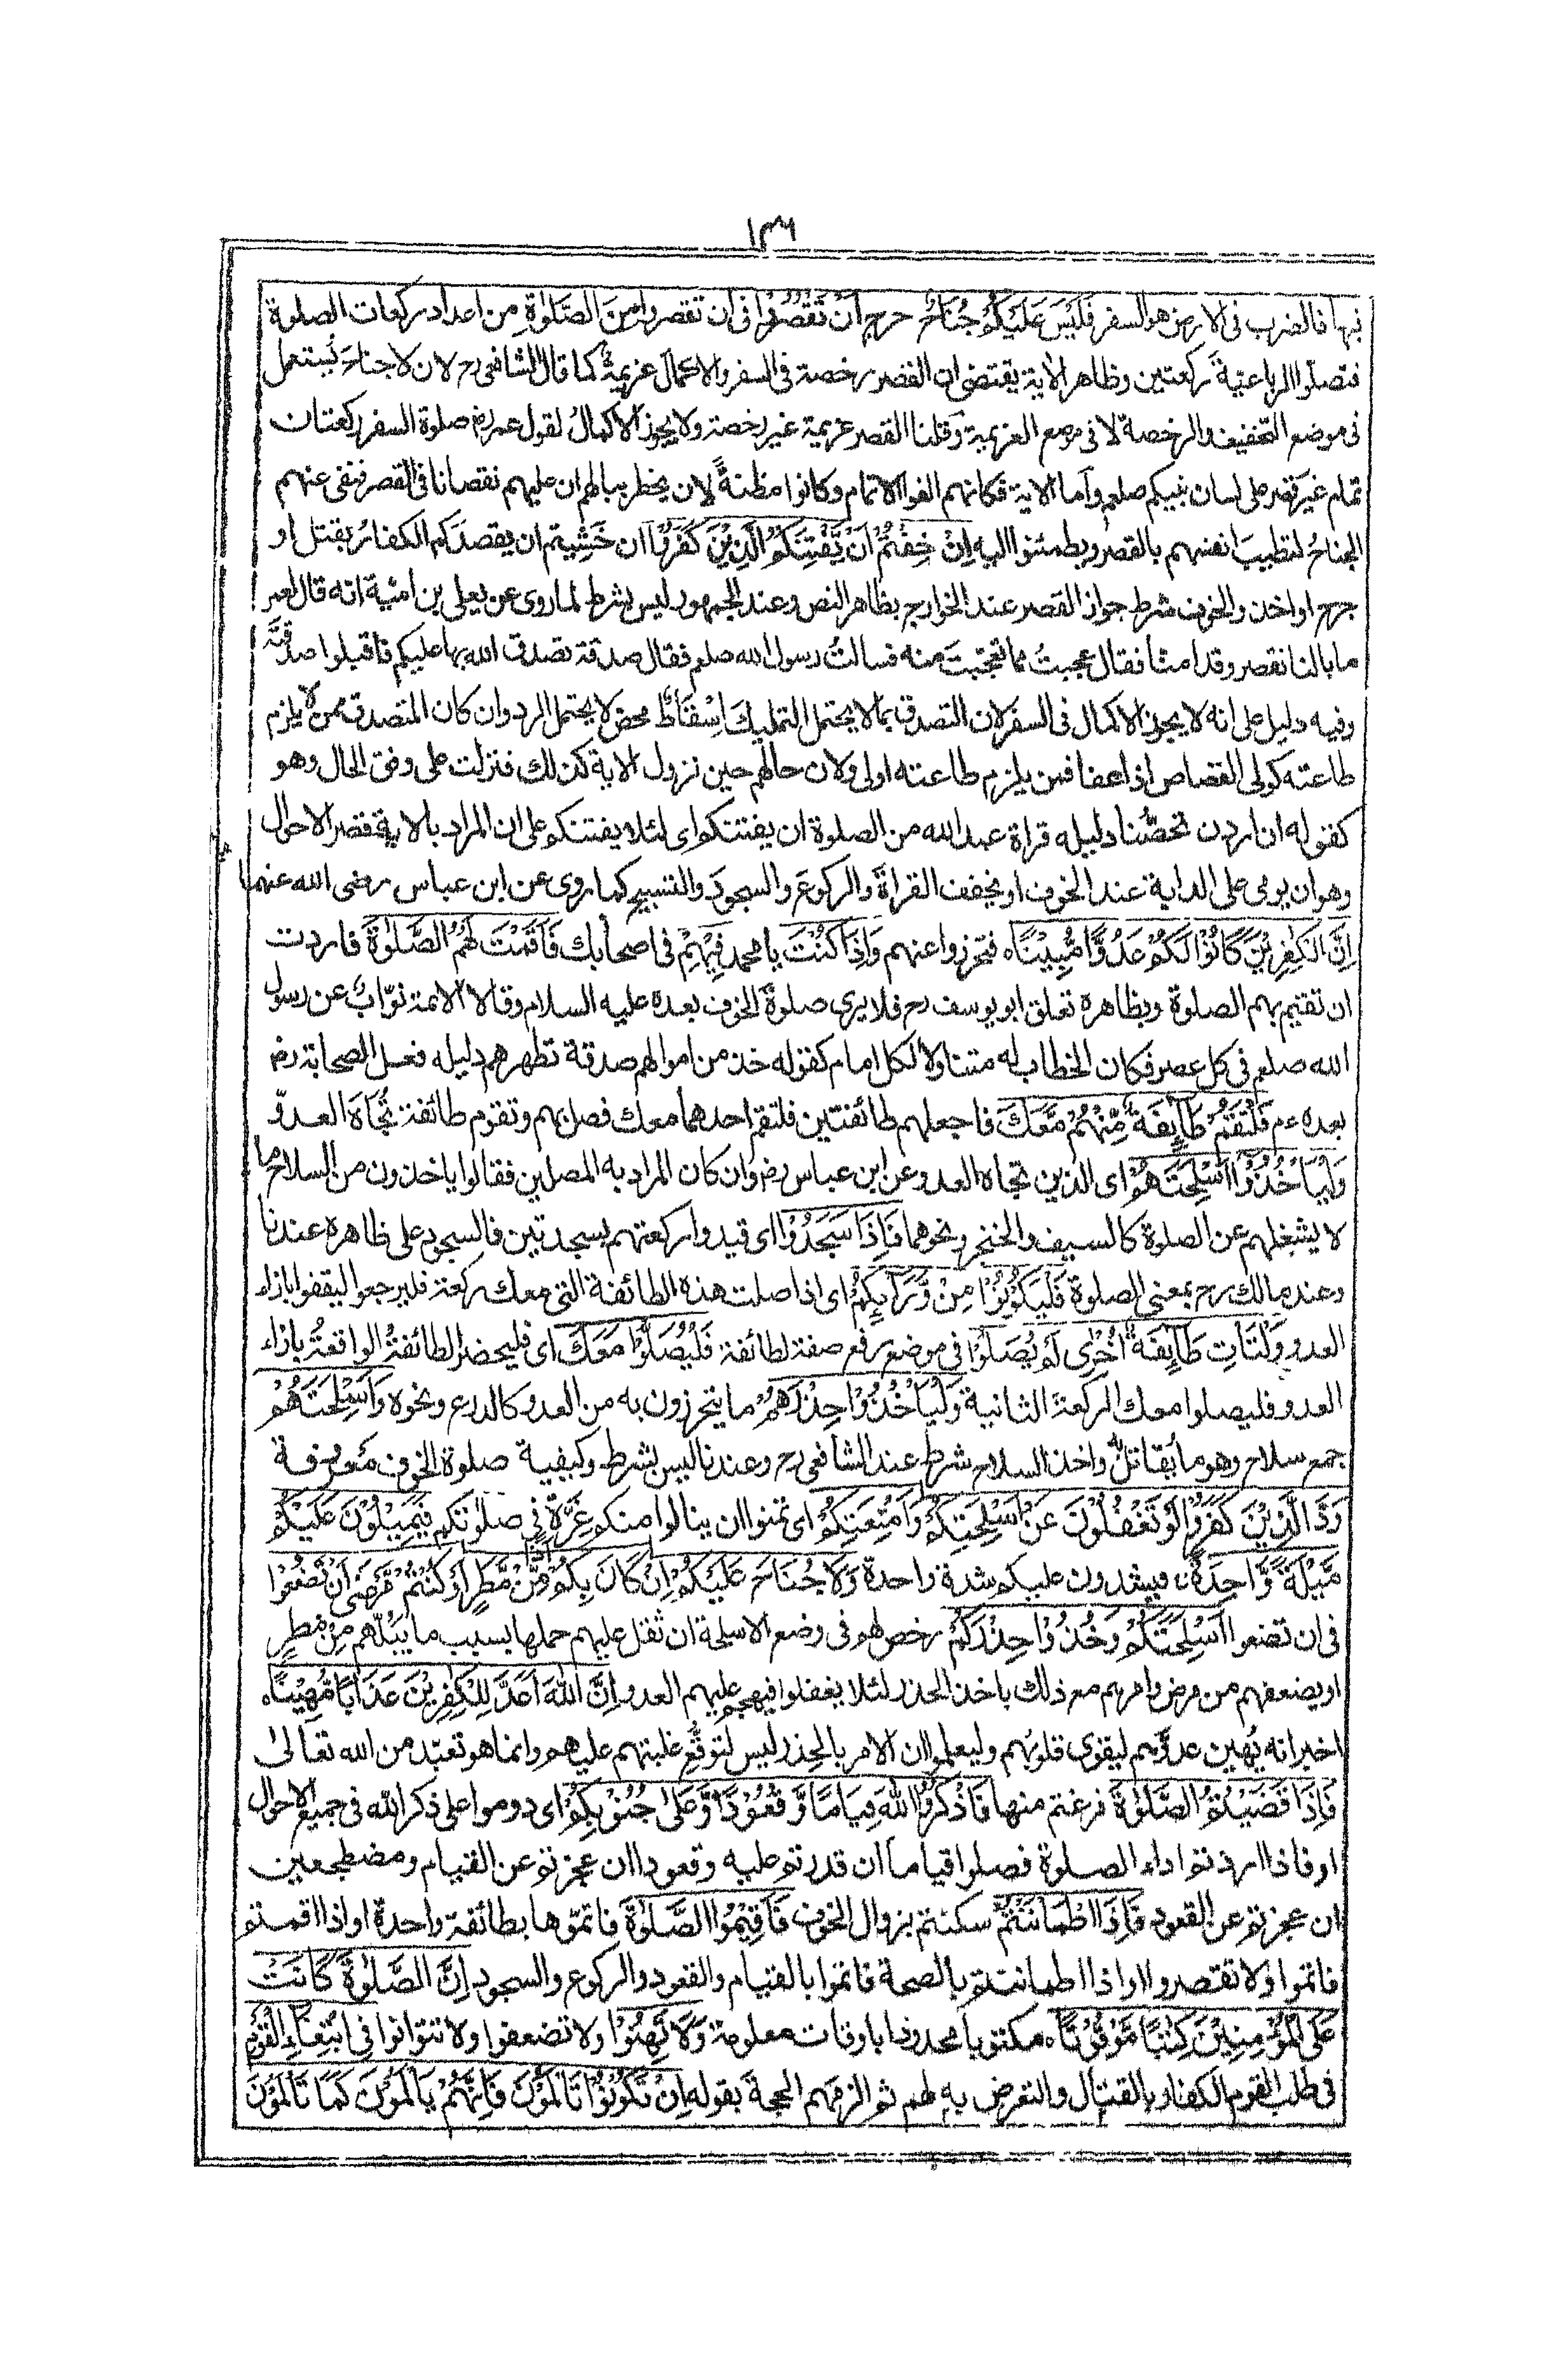 ١٣٦
فيها فالضرب فى الارض هو السفر فَلَيْسَ عَلَيْكُمْ جُنَاحٌ حرج اَنْ تَقْصُرُوْا فى ان تقصروا مِنَ الصَّلٰوةِ من اعداد ركعات الصلوة
فتصلوا الرباعيّةَ ركعتين وظاهر الاية يقتضى ان القصر رخصة فى السفر والاكمال عزيمةٌ كما قال الشافعى رح لان لا جناحَ يُستعمل
فى موضع التخفيف والرخصة لا فى موضع العزيمة وقلنا القصر عزيمة غير رخصة ولا يجوز الاكمالُ لقول عمر رض صلوة السفر ركعتان
تمام غير قصر على لسان نبيكم صلعم واما الاية فكانهم الفوا الاتمام وكانوا مظنةً لان يخطر ببالهم ان عليهم نقصانا فى القصر فنفى عنهم
الجناحُ لتطيبَ انفسهم بالقصر ويطمئنوا اليه اِنْ خِفْتُمْ اَنْ يَّفْتِنَكُمُ الَّذِيْنَ كَفَرُوْا ان خَشِيتم ان يقصدَكم الكفارُ بقتل او
جرح او اخذ والخوف شرط جواز القصر عند الخوارج بظاهر النص وعند الجمهور ليس بشرط لما روى عن يعلى بن امُيّة انه قال لعمر
ما بالنا نقصر وقد امنا فقال عجبتُ مما تعجّبتَ منه فسالتُ رسول الله صلعم فقال صدقة تصدق الله بها عليكم فاقبلوا صدقتَه
وفيه دليل على انه لا يجوز الاكمال فى السفر لان التصدق بما لا يحتمل التمليكَ اِسْقَاطٌ محض لا يحتمل الرد وان كان المتصدق ممن لا يلزم
طاعته كولى القصاص اذا عفا فمن يلزم طاعته اولى ولان حالهم حين نزول الاية كذلك فنزلت على وفق الحال وهو
كقوله ان اردن تحصُّنا دليله قراة عبد الله من الصلوة ان يفتنكم اى لئلا يفتنكم على ان المراد بالاية قصر الاحوال
وهو ان يومى على الدابة عند الخوف او يخفف القراةَ والركوعَ والسجودَ والتسبيح كما روى عن ابن عباس رضى الله عنهما
اِنَّ الْكٰفِرِيْنَ كَانُوْا لَكُمْ عَدُوًّا مُّبِيْنًا ه فتحرزوا عنهم وَاِذَا كُنْتَ يا محمد فِيْهِمْ فى اصحابك فَاَقَمْتَ لَهُمُ الصَّلٰوةَ فاردت
ان تقيم بهم الصلوة وبظاهره تعلق ابو يوسف رح فلا يرى صلوةَ الخوف بعده عليه السلام وقالا الائمة نوّاب عن رسول
الله صلعم فى كل عصر فكان الخطاب له متناولا لكل امام كقوله خذ من اموالهم صدقة تطهرهم دليله فعل الصحابة رض
بعده ءم فَلْتَقُمْ طَآئِفَةٌ مِّنْهُمْ مَّعَكَ فاجعلهم طائفتين فلتقم احدهما معك فصل بهم وتقوم طائفة تُجَاهَ العدوّ
وَلْيَاْخُذُوْا اَسْلِحَتَهُمْ اى الذين تجاه العدو عن ابن عباس رض وان كان المراد به المصلين فقالوا ياخذون من السلاح ما
لا يشغلهم عن الصلوة كالسيف والخنجر ونحوهما فَاِذَا سَجَدُوْا اى قيدوا ركعتهم بسجدتين فالسجود على ظاهره عندنا
وعند مالك رح بمعنى الصلوة فَلْيَكُوْنُوْا مِنْ وَّرَآئِكُمْ اى اذا صلت هذه الطائفة التى معك ركعة فليرجعوا ليقفوا بازاء
العدو وَلْتَاْتِ طَآئِفَةٌ اُخْرٰى لَمْ يُصَلُّوْا فى موضع رفع صفة لطائفة فَلْيُصَلُّوْا مَعَكَ اى فليحضر الطائفةُ الواقعةُ بازاء
العدو فليصلوا معك الركعةَ الثانية وَلْيَاْخُذُوْا حِذْرَهُمْ ما يتحرزون به من العدو كالدرع ونحوه وَاَسْلِحَتَهُمْ
جمع سلاح وهو ما يُقاتل به واخذ السلاح شرط عند الشافعى رح وعندنا ليس بشرط وكيفية صلوة الخوف معروفة
وَدَّ الَّذِيْنَ كَفَرُوْا لَوْ تَغْفُلُوْنَ عَنْ اَسْلِحَتِكُمْ وَاَمْتِعَتِكُمْ اى تمنوا ان ينالوا منكم غِرَّةً فى صلوتكم فَيَمِيْلُوْنَ عَلَيْكُمْ
مَّيْلَةً وَّاحِدَةً فيشدون عليكم شدة واحدة وَلَا جُنَاحَ عَلَيْكُمْ اِنْ كَانَ بِكُمْ اَذًى مِّنْ مَّطَرٍ اَوْ كُنْتُمْ مَّرْضٰى اَنْ تَضَعُوْا
فى ان تضعوا اَسْلِحَتَكُمْ وَخُذُوْا حِذْرَكُمْ رخص لهم فى وضع الاسلحة ان ثقل عليهم حملها بسبب ما يَبُلّهم مِنْ مَطرٍ
او يضعفهم من مرض وامرهم مع ذلك باخذ الحذر لئلا يغفلوا فيهجم عليهم العدو اِنَّ اللّٰهَ اَعَدَّ لِلْكٰفِرِيْنَ عَذَابًا مُّهِيْنًا ه
اخبر انه يُهين عدوَّهم ليقوى قلوبُهم وليعلموا ان الامر بالحِذر ليس لتوقُّع غلبتهم عليهم وانما هو تعبّد من الله تعالىٰ
فَاِذَا قَضَيْتُمُ الصَّلٰوةَ فرغتم منها فَاذْكُرُوا اللّٰهَ قِيَامًا وَّ قُعُوْدًا وَّعَلٰى جُنُوْبِكُمْ اى دوموا على ذكر الله فى جميع الاحوال
او فاذا اردتم اداء الصلوة فصلوا قياما ان قدرتم عليه وقعودا ان عجزتم عن القيام ومضطجعين
ان عجزتم عن القعود فَاِذَا اطْمَاْنَنْتُمْ سكنتم بزوال الخوف فَاَقِيْمُوا الصَّلٰوةَ فاتمّوها بطائفة واحدة او اذا اقمتم
فاتموا ولا تقصروا او اذا اطماننتم بالصحة فاتموا بالقيام والقعود والركوع والسجود اِنَّ الصَّلٰوةَ كَانَتْ
عَلَى الْمُؤْمِنِيْنَ كِتٰبًا مَّوْقُوْتًا ه مكتوبا محدودا باوقات معلومة وَلَا تَهِنُوْا ولا تضعفوا ولا تتوانوا فِى ابْتِغَآءِ الْقَوْمِ
فى طلب القوم الكفار بالقتال والتعرض به لهم ثم الزمهم الحجة بقوله اِنْ تَكُوْنُوْا تَاْلَمُوْنَ فَاِنَّهُمْ يَاْلَمُوْنَ كَمَا تَاْلَمُوْنَ